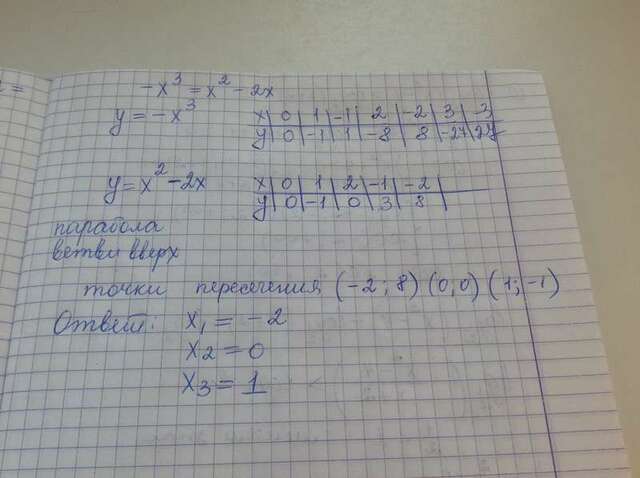 -x³ = x² - 2x
y = -x³
x | 0 | 1 | -1 | 2 | -2 | 3 | -3
y | 0 | -1 | 1 | -8 | 8 | -27 | 27
y = x² - 2x
x | 0 | 1 | 2 | -1 | -2 |
y | 0 | -1 | 0 | 3 | 8 |
парабола
ветви вверх
точки пересечения (-2; 8) (0,0) (1; -1)
Ответ: x₁ = -2
x₂ = 0
x₃ = 1